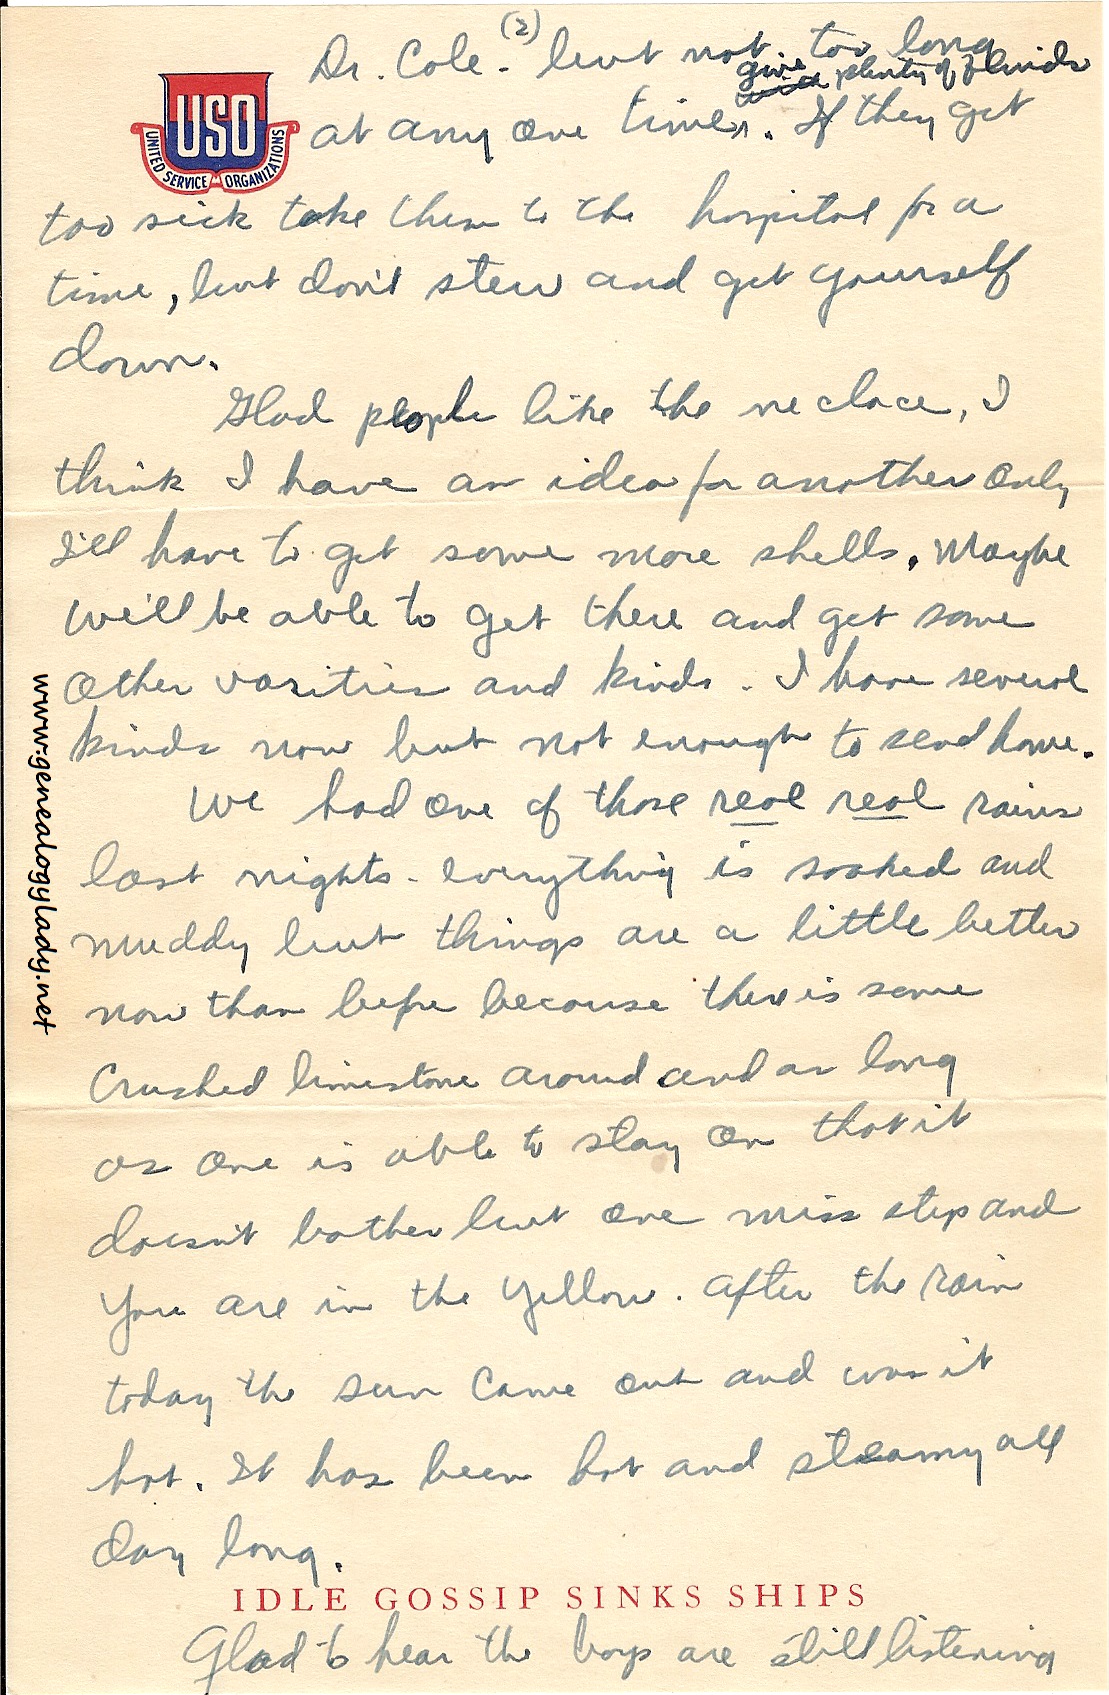 (2)
Dr. Cole - but not too long
give plenty of fluids
at any one time. If they get
USO
UNITED SERVICE ORGANIZATIONS
too sick take them to the hospital for a
time, but don't stew and get yourself
down.
Glad people like the neclace, I
think I have an idea for another only
I'll have to get some more shells. Maybe
we'll be able to get there and get some
other varities and kinds. I have several
kinds now but not enough to send home.
We had one of those real real rains
last nights - everything is soaked and
muddy but things are a little better
now than before because there is some
crushed limestone around and as long
as one is able to stay on that it
doesn't bother but one miss step and
you are in the yellow. After the rain
today the sun came out and was it
hot. It has been hot and steamy all
day long.
IDLE GOSSIP SINKS SHIPS
Glad to hear the boys are still listening
www.genealogylady.net